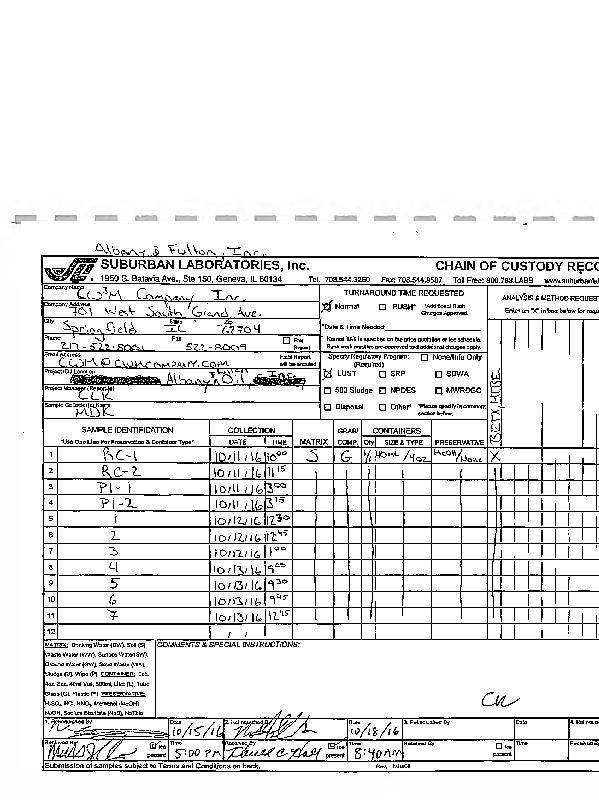 Albany & Fulton, Inc.
SUBURBAN LABORATORIES, Inc.
CHAIN OF CUSTODY RECO
1950 S. Batavia Ave., Ste 150, Geneva, IL 60134 Tel. 708.544.3260 Fax: 708.544.8587 Toll Free: 800.783.LABS www.suburbanlab
Company Name
CW³M Company Inc.
TURNAROUND TIME REQUESTED
ANALYSIS & METHOD REQUEST
Company Address
701 West South Grand Ave.
Normal RUSH* *Additional Rush Charges Approved.
Enter an "X" in box below for requ
City State Zip
Springfield IL 62704
*Date & Time Needed:
Phone Fax
217-522-8001 522-8009
Normal TAT is
Rush work must be pre-approved and additional charges apply.
Email Address
CWM@CWMCOMPANY.COM
Specify Regulatory Program: (Required) None/Info Only
Project ID / Location
Albany Oil
LUST SRP SDWA
Project Manager (Report to)
CLR
503 Sludge NPDES MWRDGC
Sample Collector(s) Name
MDR
Disposal Other* *Please specify in comment section below.
BETX MTBE
SAMPLE IDENTIFICATION COLLECTION GRAB/ CONTAINERS
*Use One Line Per Preservation & Container Type* DATE TIME MATRIX COMP. Qty SIZE & TYPE PRESERVATIVE
1 RC-1 10/11/16 10:00 S G 40mL/4oz MeOH/None X
2 RC-2 10/11/16 11:15
3 P1-1 10/11/16 3:00
4 P1-2 10/11/16 3:15
5 1 10/12/16 12:30
6 2 10/12/16 12:45
7 3 10/12/16 1:00
8 4 10/13/16 9:00
9 5 10/13/16 9:30
10 6 10/13/16 9:45
11 7 10/13/16 12:15
12 / /
MATRIX: Drinking Water (DW), Soil (S)
Waste Water (WW), Surface Water (SW),
Ground Water (GW), Solid Waste (WA),
Sludge (U), Wipe (P) CONTAINER: 2oz,
4oz, 8oz, 40ml Vial, 500ml, Liter (L), Tube
Glass (G), Plastic (P) PRESERVATIVE:
H2SO4, HCl, HNO3, Methanol (MeOH)
NaOH, Sodium Bisulfate (NaB), NaThio
COMMENTS & SPECIAL INSTRUCTIONS:
CR
1. Relinquished By Date 10/15/16 2. Relinquished By Date 10/18/16 3. Relinquished By Date 4. Relinquis
Received By Ice present Time 5:00 PM Received By Ice present Time 8:40AM Received By Ice present Time Received
Submission of samples subject to Terms and Conditions on back.